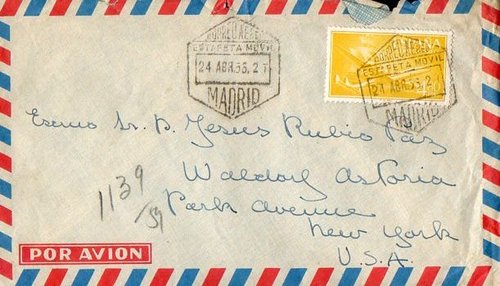 CORREO AEREO
ESTAFETA MOVIL
24 ABR.55.2T
MADRID
CORREO AEREO
ESTAFETA MOVIL
24 ABR.55.2T
Excmo Sr. D. Jesus Rubio Paz
Waldorf Astoria
Park Avenue
New York
U.S.A.
1139
/59
POR AVION